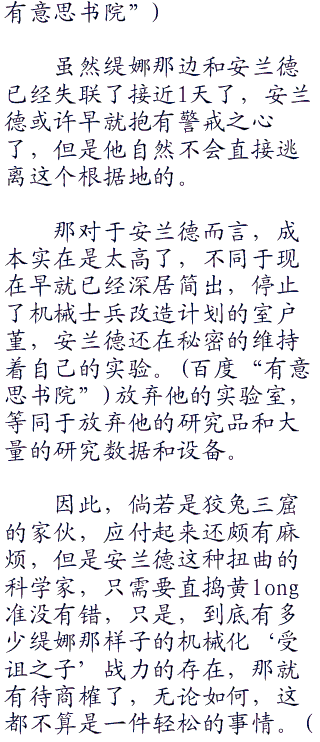 有意思书院”)
虽然缇娜那边和安兰德
已经失联了接近1天了，安兰
德或许早就抱有警戒之心
了，但是他自然不会直接逃
离这个根据地的。
那对于安兰德而言，成
本实在是太高了，不同于现
在早就已经深居简出，停止
了机械士兵改造计划的室户
堇，安兰德还在秘密的维持
着自己的实验。(百度“有意
思书院”)放弃他的实验室，
等同于放弃他的研究品和大
量的研究数据和设备。
因此，倘若是狡兔三窟
的家伙，应付起来还颇有麻
烦，但是安兰德这种扭曲的
科学家，只需要直捣黄long
准没有错，只是，到底有多
少缇娜那样子的机械化‘受
诅之子’战力的存在，那就
有待商榷了，无论如何，这
都不算是一件轻松的事情。(